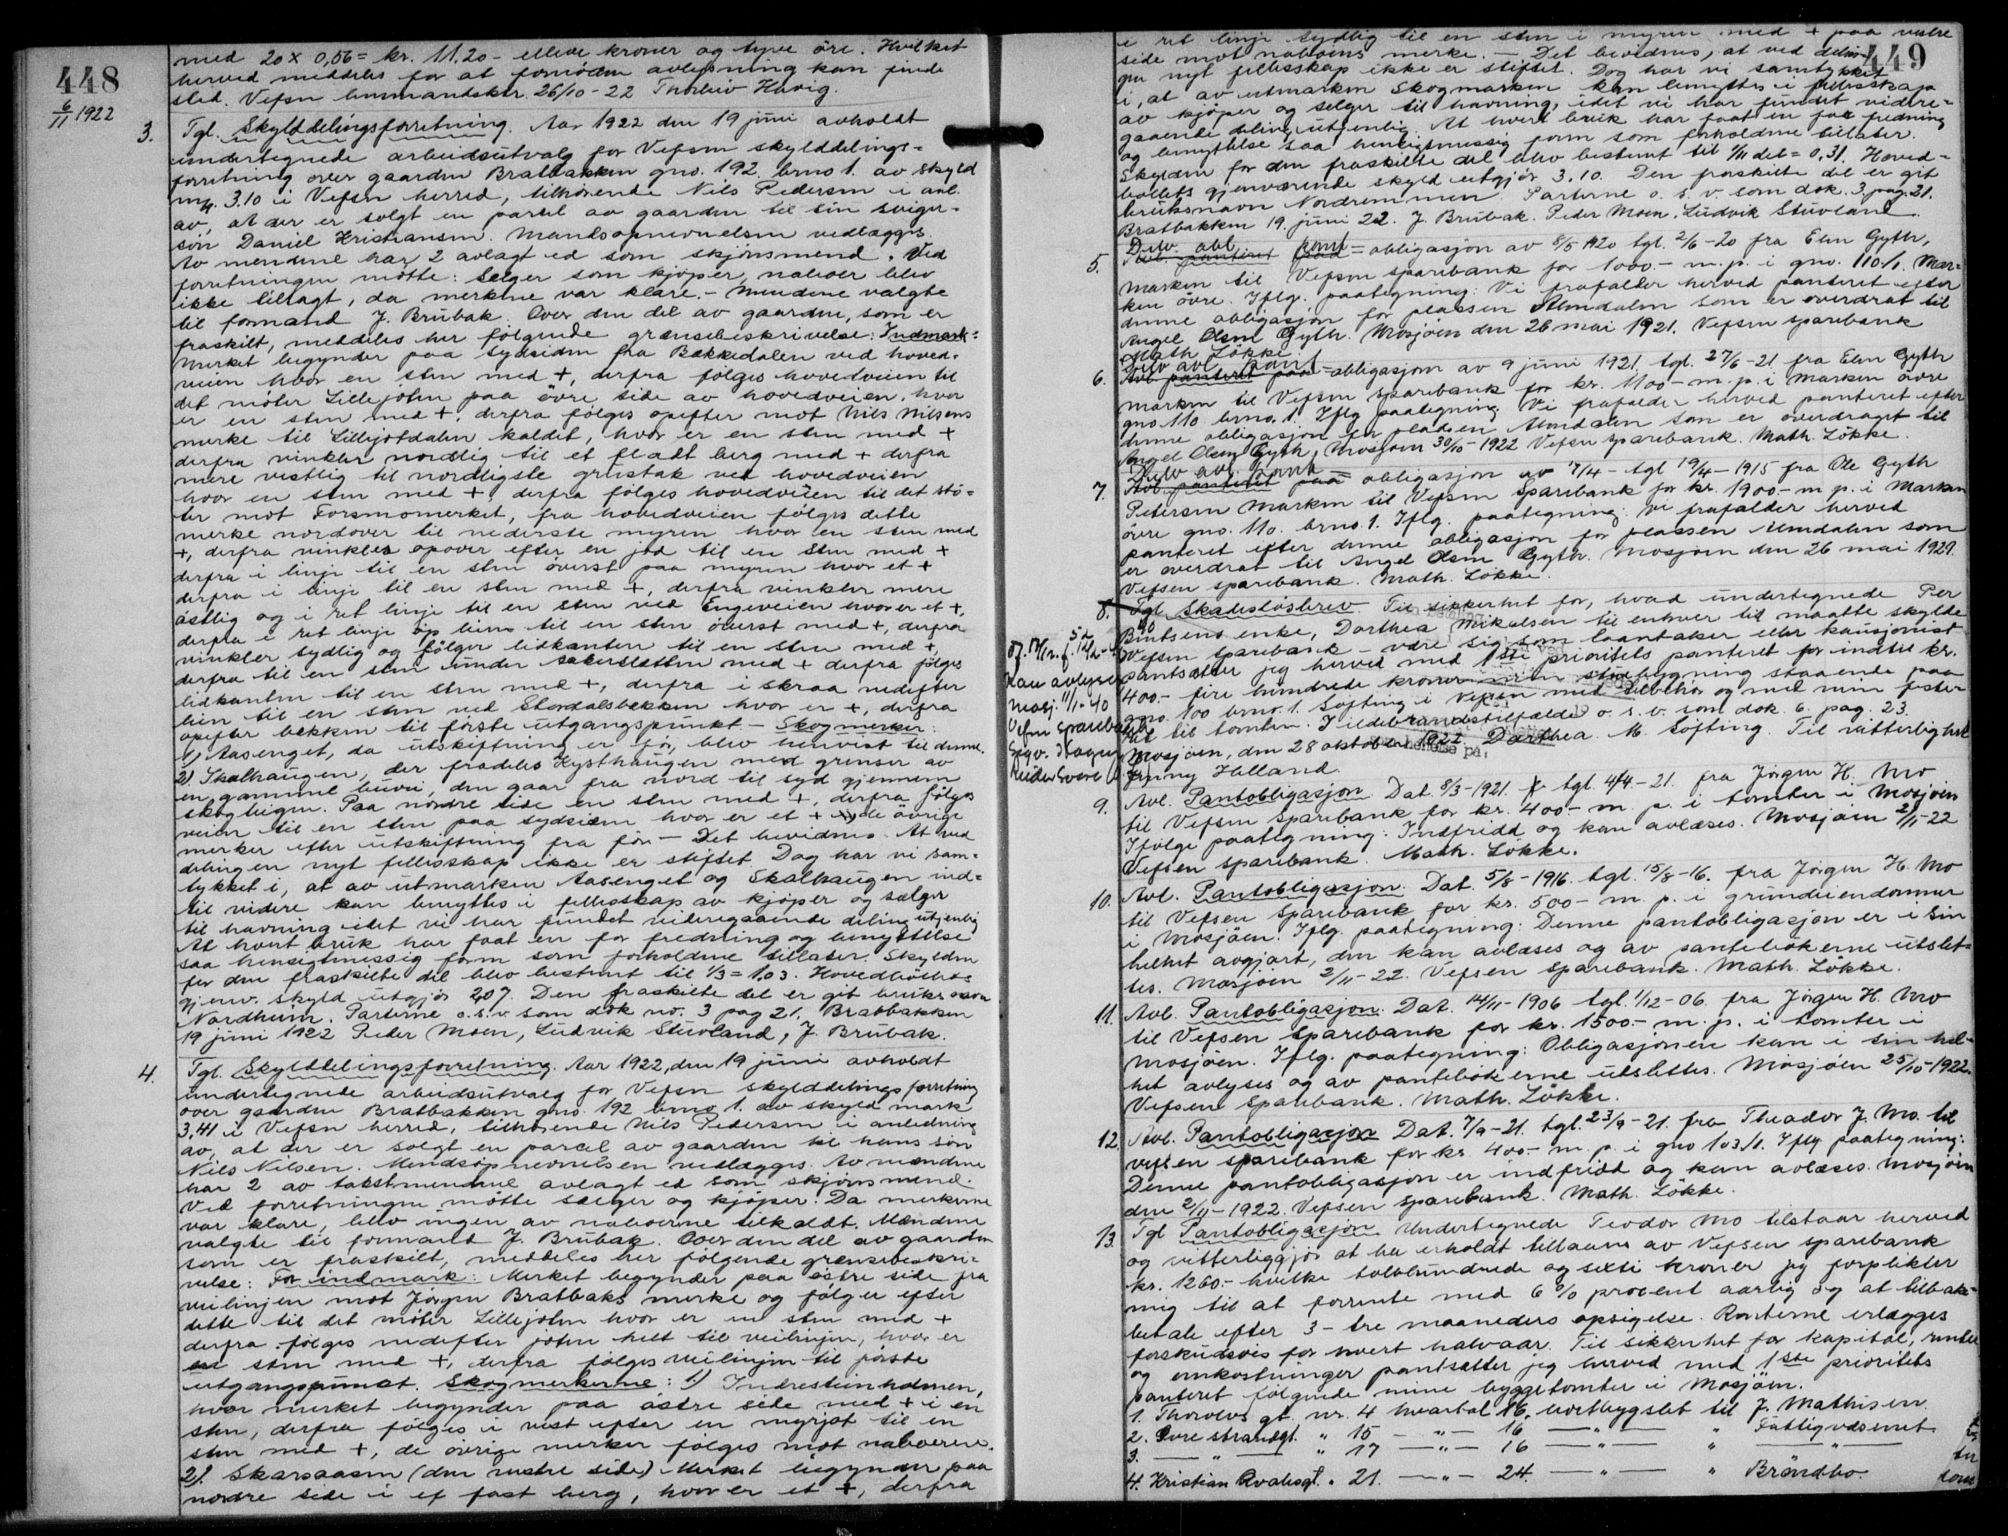 448
6/11 1922
med 20 x 0,56 = kr. 11.20 - elleve kroner og tyve øre. Hvilket
herved meddeles for at fornøden avlysning kan finde
sted. Vefsn lensmandsktr. 26/10 - 22 Thorleiv Havig.
3. Tgl. Skylddelingsforretning. Aar 1922 den 19 juni avholdt
undertegnede arbeidsutvalg for Vefsn skylddelings-
forretning over gaarden Bratbakken gno. 192. brno 1. av skyld
mk. 3.10 i Vefsn herred, tilhørende Nils Pedersen i anl.
av, at der er solgt en parsel av gaarden til sin sviger-
søn Daniel Kristiansen. Mandsopnevnelsen vedlægges.
Av mendene har 2 avlagt ed som skjønsmend. Ved
forretningen møtte: Selger som kjøper, naboer blev
ikke tillagt, da merkene var klare. - Mendene valgte
til formand J. Brubak. Over den del av gaarden, som er
fraskilt, meddeles her følgende grænsebeskrivelse: Indmark:
Merket begynder paa sydsiden fra Bækkedalen ved hoved-
veien hvor en sten med +, derfra følges hovedveien til
det møter Lillejohn paa øvre side av hovedveien, hvor
er en sten med +, derfra følges opefter mot Nils Nilsens
merke til Lillejotdalen kaldet, hvor er en sten med +
derfra vinkler nordlig til et fladt berg med + derfra
mere vestlig til nordligste grustak ved hovedveien
hvor en sten med +, derfra følges hovedveien til det stø-
ter mot Forsmomerket, fra hovedveien følges dette
merke nordover til nederste myren hvor en sten med
+, derfra vinkles opover efter en jod til en sten med +
derfra i linje til en sten øverst paa myren hvor et +
derfra i linje til en sten med +, derfra vinkler mere
østlig og i ret linje til en sten ved Engeveien hvor er et +,
derfra i ret linje op lien til en sten øverst med +, derfra
vinkler sydlig og følger lidkanten til en sten med +,
derfra til en sten under sakersletten med + derfra følges
lidkanten til en sten med +, derfra i skraa nedefter
lien til en sten ved Stordalsbekken hvor er +, derfra
opefter bekken til første utgangspunkt - Skogmerker:
1) Aasenget, da utskiftning er før, blev henvist til denne.
2) Skalhaugen, der fradeles Hysthaugen med grenser av
en gammel buvei, den gaar fra nord til syd gjennem
skogteigen. Paa nordre side en sten med +, derfra følges
veien til en sten paa sydsiden hvor er et + de øvrige
merker efter utskiftning fra før - Det bevidnes. At ved
delingen nyt fellesskap ikke er stiftet. Dog har vi sam-
tykket i, at av utmarken Aasenget og Skalhaugen ind-
til videre kan benyttes i fellesskap av kjøper og sælger
til havning idet vi har fundet videregaaende deling utjenlig
At hvert bruk har faat en for fredning og benyttelse
saa hensigtmessig form som forholdene tillater. Skylden
for den fraskilte del blev bestemt til 1/3 = 1.03. Hovedbølets
gjenv. skyld utgjør 2,07. Den fraskilte del er git bruksnavn
Nordheim. Parterne o.s.v. som dok no. 3 pag 21. Bratbakken
19 juni 1922 Peder Moen, Ludvik Stuvland, J. Brubak.
4. Tgl. Skylddelingsforretning. Aar 1922, den 19 juni avholdt
undertegnede arbeidsutvalg for Vefsn skylddelingsforretning
over gaarden Bratbakken gno. 192 brno 1. av skyld mark
3,41 i Vefsn herred, tilhørende Nils Pedersen i anledning
av, at der er solgt en parcel av gaarden til hans søn
Nils Nilsen. Mendsopnevnelsen vedlægges. Av mændene
har 2 av takstmennene avlagt ed som skjønsmend.
Ved forretningen møtte sælger og kjøper. Da merkerne
var klare, blev ingen av naboerne tilkaldt. Mændene
valgte til formand J. Brubak. Over den del av gaarden
som er fraskilt, meddeles her følgende grensebeskri-
velse: For indmark: Merket begynder paa østre side fra
veilinjen mot Jørgen Bratbaks merke og følger efter
dette til det møter Lillejohn hvor er en sten med +
derfra følges nedefter joten helt til veilinjen, hvor er
en sten med +, derfra følges veilinjen til første
utgangspunct. Skogmerkerne: 1) Indresteinholmen,
hvor merket begynder paa østre side med + i en
sten, derfra følges i vest efter en myrjøt til en
sten med +, de øvrige merker følges mot naboerne.
2). Skarsaasen (den vestre side) Merket begynder paa
nordre side i et fast berg, hvor er et +, derfra
449
i ret linje sydlig til en sten i myren med + paa vestre
side mot naboens merke. - Det bevidnes, at ved delin-
gen nyt fellesskap ikke er stiftet. Dog har vi samtykket
i, at av utmarken Skogmarken kan benyttes i fellesskap
av kjøper og selger til havning, idet vi har fundet videre-
gaaende deling utjenlig. At hvert bruk har faat en for fredning
og benyttelse saa hensigtmessig form som forholdene tillater.
Skylden for den fraskilte del blev bestemt til 1/11 del = 0,31. Hoved-
bøllets gjenværende skyld utgjør 3.10. Den fraskilte del er git
bruksnavn Nordremmen. Parterne o.s.v. som dok. 3, pag. 21.
Bratbakken 19. juni 22. J. Brubak. Peder Moen. Ludvik Stuvland
5. Delv. avl. pant = obligasjon av 8/5 1920 tgl. 2/6 - 20 fra Elen Gyth,
marken til Vefsn sparebank for 1000.- m.p. i gno. 110/1. Mar-
ken øvre. Iflg. paategning: Vi frafalder herved panteret efter
denne obligasjon for plassen Almdalen som er overdrat til
Angel Olsen Gyth. Mosjøen den 26 mai 1921. Vefsn sparebank
Math Løkke.
6. Delv avl. pant = obligasjon av 9 juni 1921. tgl. 27/6 - 21 fra Elen Gyth
marken til Vefsn sparebank for kr. 1100 - m.p. i marken øvre
gno 110 brno. 1. Iflg paategning: Vi frafalder herved panteret efter
denne obligasjon for pladsen Almdalen som er overdragt til
Angel Olsen Gyth, Mosjøen 30/10 - 1922 Vefsn sparebank. Math. Løkke.
7. Delv avl. pant = obligasjon av 7/4 - tgl 19/4 - 1915 fra Ole Gyth
Petersen Marken til Vefsn sparebank for kr. 1900 - m.p. i Marken
øvre gno. 110. brno. 1. Iflg. paategning: Vi frafalder herved
panteret efter denne obligasjon for plassen Almdalen som
er overdrat til Angel Olsen Gyth. Mosjøen den 26 mai 1921.
Vefsen sparebank. Math. Løkke.
8. Tgl Skadesløsbrev. Til sikkerhet for, hvad undertegnede Per
Bentsens enke, Dorthea Mikalsen til enhver tid maatte skylde
Vefsn sparebank - være sig som laantaker eller kausjonist
pantsætter jeg herved med 1ste prioritets panteret for indtil kr.
400.- fire hundrede kroner min stuebygning staaende paa
gno. 100 brno 1. Søfting i Vefsn med tilbehør og med min feste-
ret til tomten. I ildebrandstilfælde o.s.v. som dok 6. pag. 23.
Mosjøen, den 28 oktober 1922 Dorthea M. Søfting. Til vitterlighet
Jenny Helland.
Kan avlyses
Mosj. 11/1 - 40
Vefsn Sparebank
9. Avl. Pantobligasjon. Dat. 8/3 - 1921. tgl. 4/4 - 21. fra Jørgen H. Mo
til Vefsn sparebank for kr. 400 - m.p. i tomter i Mosjøen
Ifølge paategning: Indfridd og kan avlæses. Mosjøen 2/11 - 22
Vefsen sparebank. Math. Løkke.
10. Avl. Pantobligasjon. Dat. 5/8 - 1916. tgl. 15/8 - 16. fra Jørgen H. Mo
til Vefsen sparebank for kr. 500 - m.p. i grundeiendommer
i Mosjøen. Iflg. paategning: Denne pantobligasjon er i sin
helhet avgjort, den kan avlæses og av pantebøkerne utslet-
tes. Mosjøen 2/11 - 22. Vefsen sparebank. Math. Løkke.
11. Avl. Pantobligasjon. Dat. 14/11 - 1906 tgl. 1/12 - 06. fra Jørgen H. Mo
til Vefsen sparebank for kr. 1500.- m.p. i tomter i
Mosjøen. Iflg. paategning: Obligasjonen kan i sin hel-
het avlyses og av pantebøkerne utslettes. Mosjøen 25/10 - 1922
Vefsen sparebank. Math. Løkke.
12. Avl. Pantobligasjon Dat. 7/9 - 21. tgl. 23/9 - 21. fra Theodor J. Mo. til
vefsen sparebank for kr. 400 - m.p. i gno 103/1. Iflg paategning:
Denne pantobligasjon er indfridd og kan avlæses. Mosjøen
den 2/11 - 1922. Vefsen sparebank. Math. Løkke.
13. Tgl Pantobligasjon Undertegnede Teodor Mo tilstaar herved
og vitterliggjør at ha erholdt tillaans av Vefsen sparebank
kr. 1260.- hvilke tolvhundrede og sexti kroner jeg forplikter
mig til at forrente med 6 % procent aarlig og at tilbake-
betale efter 3 - tre maaneders opsigelse. Renterne erlægges
forskudsvis for hvert halvaar. Til sikkerhet for kapital, renter
og omkostninger pantsætter jeg herved med 1ste prioritets
panteret følgende mine byggetomter i Mosjøen.
1. Thorolvs gt. nr. 4 kvartal 16, bortbygslet til J. Mathisen.
2. Øvre strandgt. " 15 - " - 16 - " - " Fattigvæsenet
3. - " - " 17 - " - 16 - " - " - " -
4. Kristian Qvalesgt. " 21. - " - 24 - " - " Brændbo.